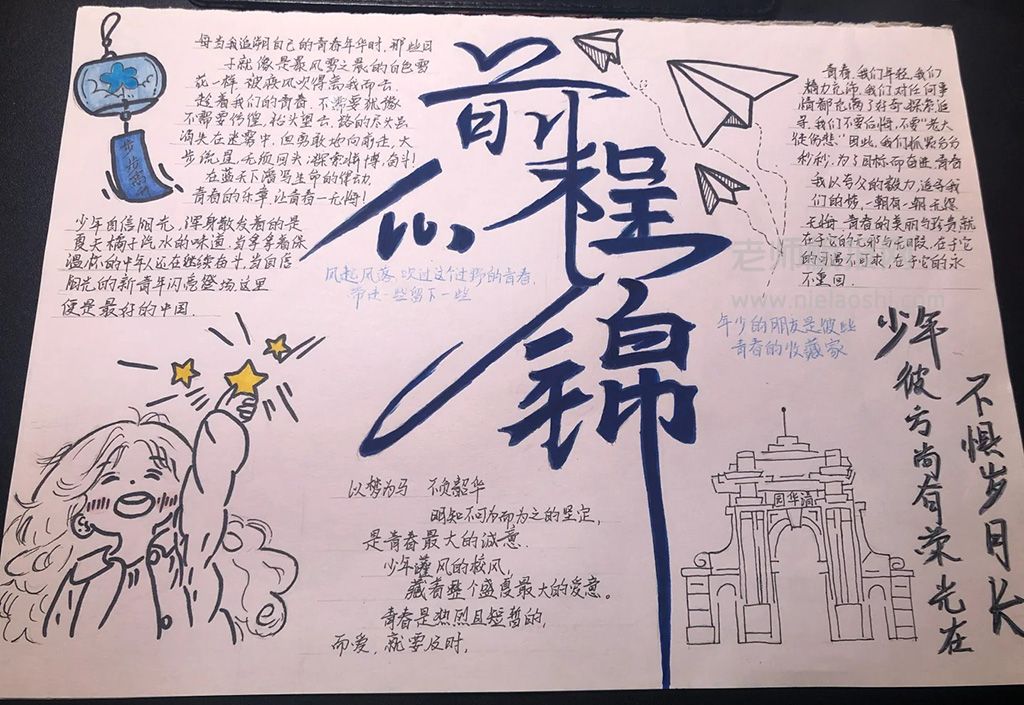 前程
似
锦
每当我追溯自己的青春年华时，那些日
子就像是暴风雪之晨的白色雪
花一样，被疾风吹得离我而去。
趁着我们的青春，不需要犹豫
不需要彷徨，抬头望去，路的尽头虽
消失在迷雾中，但勇敢地向前往，大
步流星，无须回头，探索拼搏，奋斗！
在蓝天下谱写生命的律动，
青春的乐章，让青春无悔！
步步高升
少年自信阳光，浑身散发着的是
夏天橘子汽水的味道，当拿拿着保
温杯的中年人还在继续奋斗，当自信
阳光的新青年闪亮登场，这里
便是最好的中国。
风起风落，吹过这个过野的青春，
带走一些留下一些
青春，我们年轻，我们
精力充沛，我们对任何事
情都充满了好奇，探索追
寻，我们不要后悔，不要"老大
徒伤悲"因此，我们抓紧分分
秒秒，为了目标而奋进，青春
我以夸父的毅力，追寻我
们的梦，一朝有一朝，无怨
无悔，青春的美丽与珍贵，就
在于它的无邪与无瑕，在于它
的可遇不可求，在于它的永
不重回。
www.nielaoshi.com
年少的朋友是彼此
青春的收藏家
少年
彼方尚有荣光在
不惧岁月长
以梦为马 不负韶华
明知不可为而为之的坚定，
是青春最大的诚意。
少年灌风的校风，
藏着整个盛夏最大的爱意。
青春是热烈且短暂的，
而爱，就要及时，
园华清